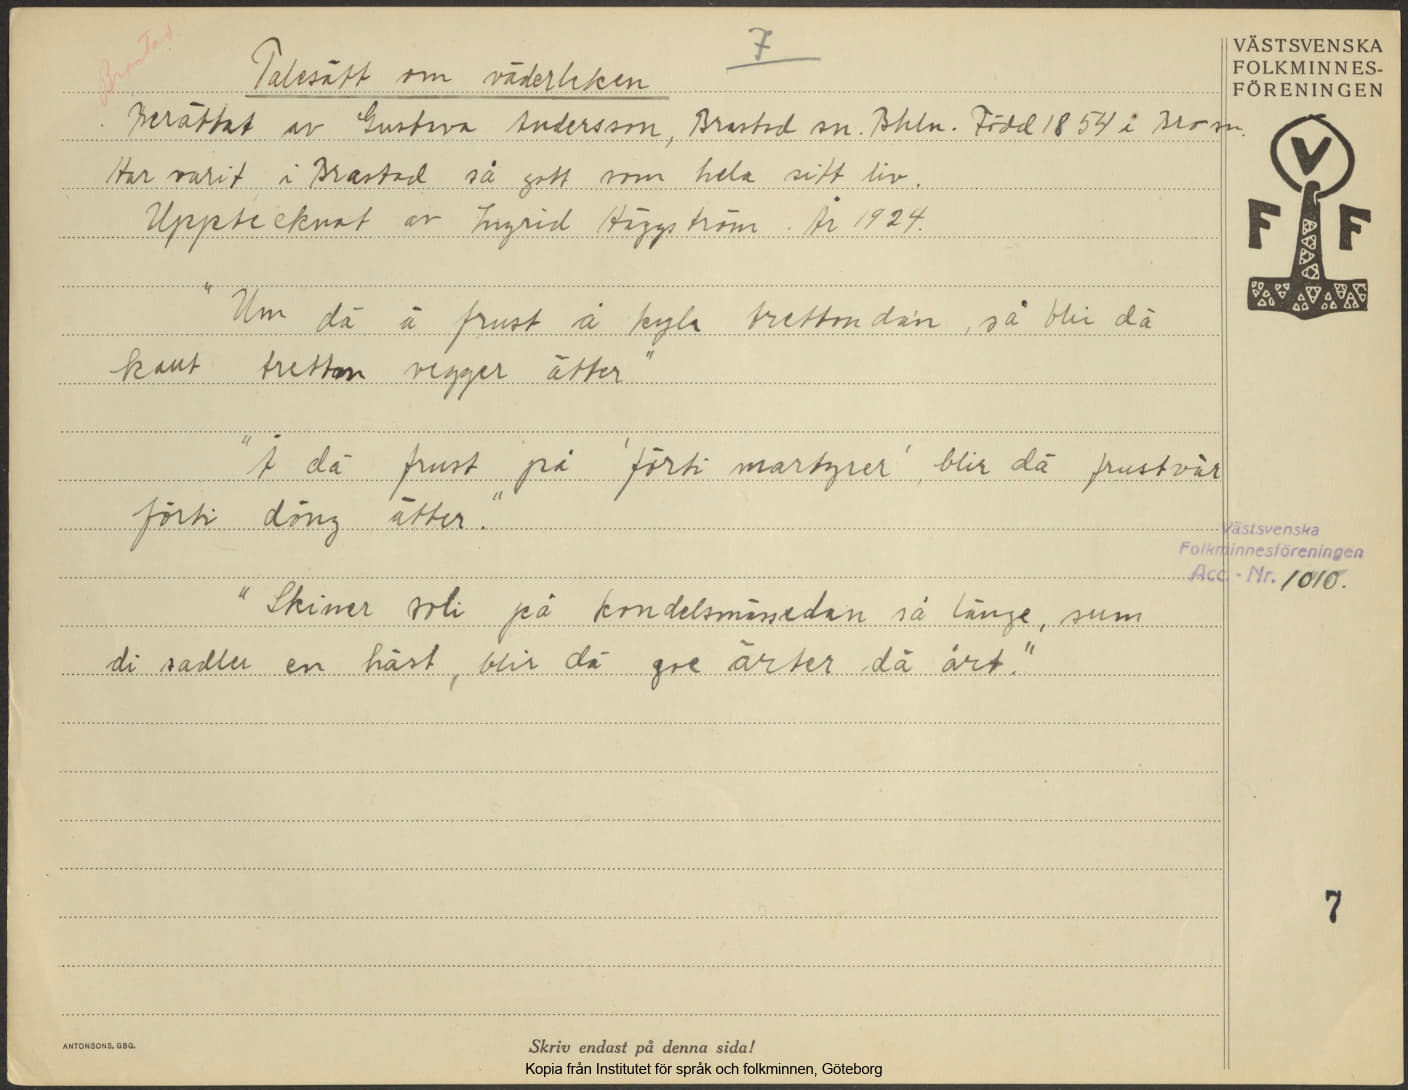 Brastad
7
Talesätt om väderleken
Berättat av Gustava Andersson, Brastad sn. Bhln. Född 1854 i Bro sn.
Har varit i Brastad så gott som hela sitt liv.
Upptecknat av Ingrid Häggström. År 1924.
"Um dä ä frust å kyla trettondán, så blir dä
kaut tretton vegger ätter"
"Ä dä frust på 'förti martyrer', blir dä frustvär
förti döng ätter."
"Skiner soli på kondelsmässedan så länge, sum
di sadler en häst, blir dä goe ärter dä årt."
VÄSTSVENSKA
FOLKMINNES-
FÖRENINGEN
V
F F
Västsvenska
Folkminnesföreningen
Acc.-Nr. 1010.
7
ANTONSONS, GBG.
Skriv endast på denna sida!
Kopia från Institutet för språk och folkminnen, Göteborg